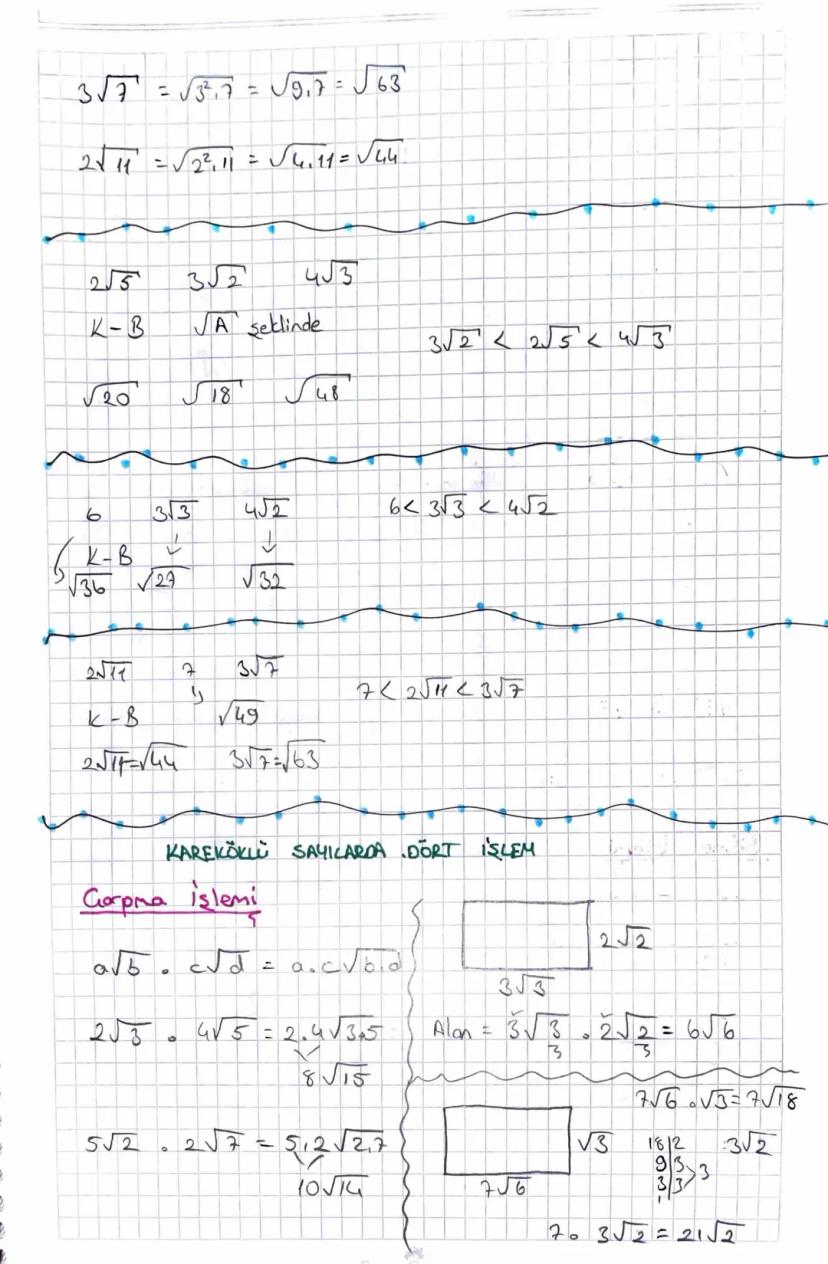 3√7 = √3².7 = √9.7 = √63
2√11 = √2².11 = √4.11 = √44
2√5 3√2 4√3
K-B √A şeklinde
3√2 < 2√5 < 4√3
√20 √18 √48
6 3√3 4√2
6 < 3√3 < 4√2
K-B
√36 √27 √32
2√11 7 3√7
7 < 2√11 < 3√7
K-B √49
2√11=√44 3√7=√63
KAREKÖKLÜ SAYILARDA DÖRT İŞLEM
Çarpma işlemi
a√b . c√d = a.c√b.d
2√3 . 4√5 = 2.4√3.5
8√15
5√2 . 2√7 = 5.2√2.7
10√14
2√2
3√3
Alan = 3√3 . 2√2 = 6√6
3 3
7√6 . √3 = 7√18
√3
7√6
18|2 3√2
9|3
3|3 >3
1
7. 3√2 = 21√2